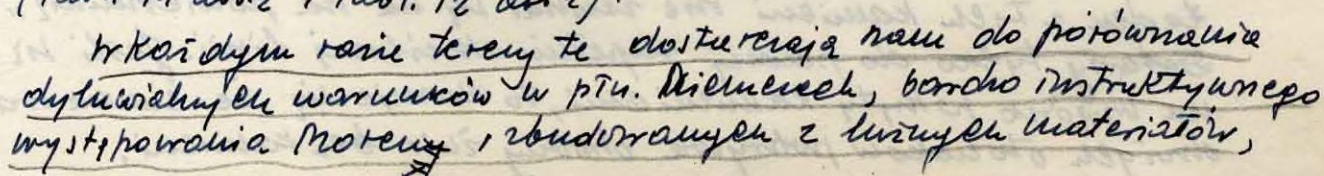 W każdym razie tereny te dostarczają nam do porównania
dyluwialnych warunków w płn. Niemczech, bardzo instruktywnego
występowania moreny, zbudowanych z luźnych materiałów,